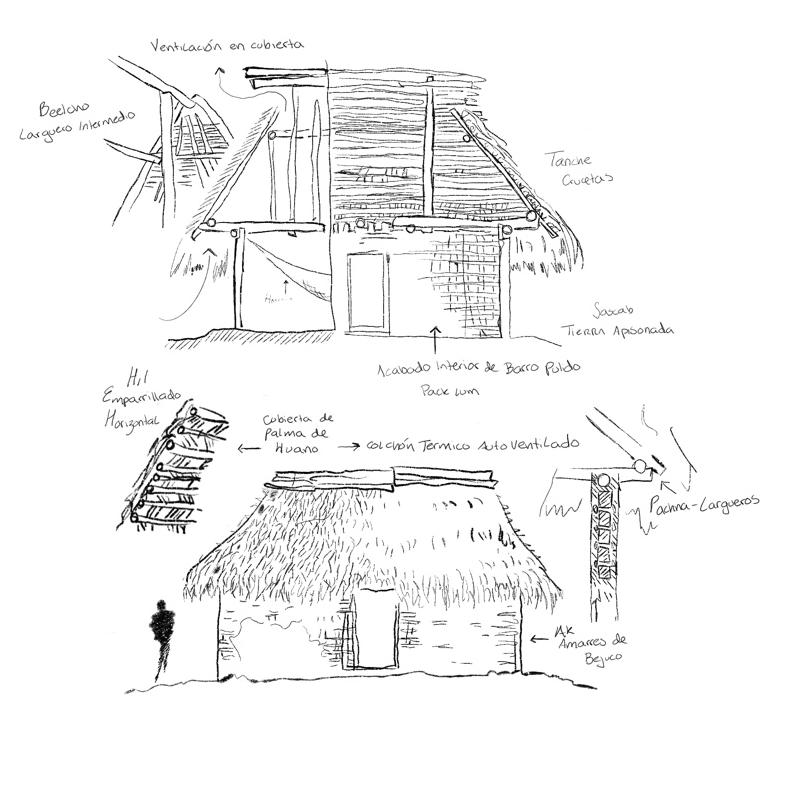 Ventilación en cubierta
Beelano
Larguero Intermedio
Tanche
Crucetas
Sascab
Tierra Apisonada
Acabado Interior de Barro Pulido
Pack lum
Hil
Emparrillado
Horizontal
Cubierta de
Palma de
Huano
Colchón Termico Auto Ventilado
Pachna-Largueros
AK
Amarres de
Bejuco